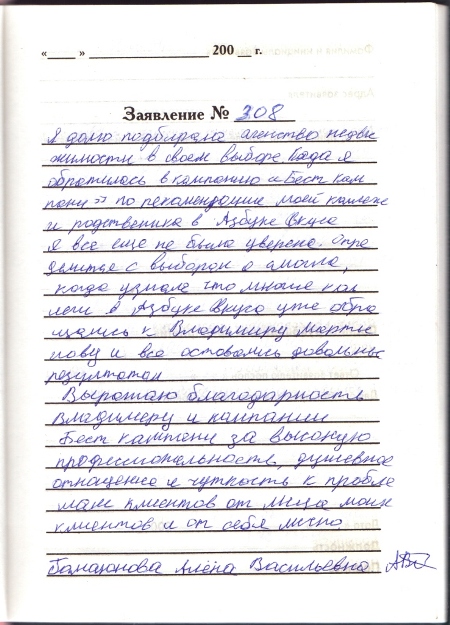 «____» ____________________ 200__ г.
Заявление № 308
Я долго подбирала агенство недви
жимости в своем выборе. Када я
обратилась в компанию «Бест Ком
пани» по рекомендации моей коллеги
и родственика в Азбуке Вкуса
я все еще не была уверена. Опре
делится с выбором я смогла,
когда узнала что многие кол
леги в Азбуке Вкуса уже обра
щались к Владимиру Марты
нову и все оставались довольны
результатом
Выражаю благодарность
Владимеру и кампании
Бест кампани за высокую
профессиональность, душевное
отнащение и чуткость к пробле
мам клиентов от лица моих
клиентов и от себя лично
Алёна Васильевна